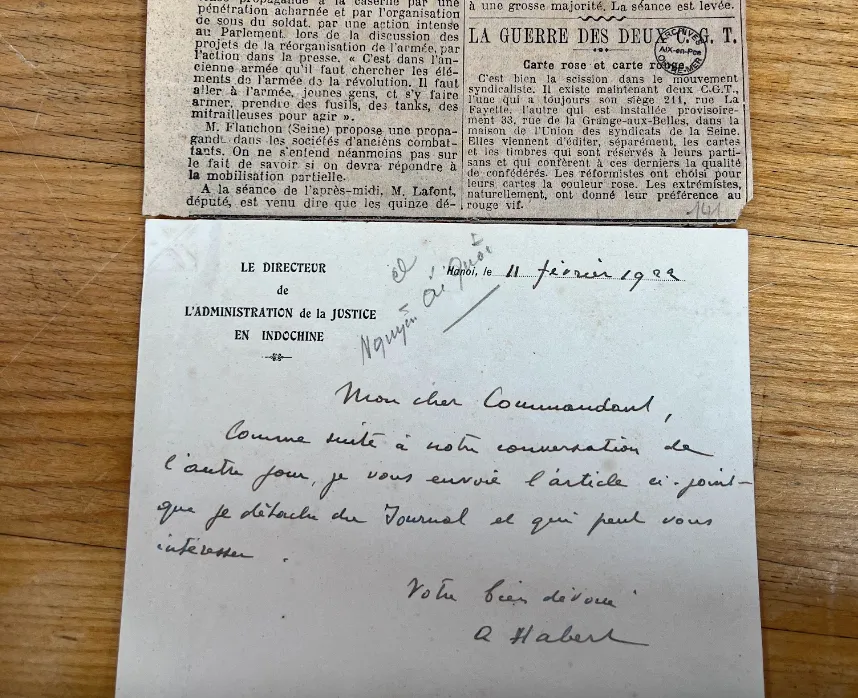 pénétration acharnée et par l'organisation
de sous du soldat, par une action intense
au Parlement, lors de la discussion des
projets de la réorganisation de l'armée, par
l'action dans la presse. « C'est dans l'an-
cienne armée qu'il faut chercher les élé-
ments de l'armée de la révolution. Il faut
aller à l'armée, jeunes gens, et s'y faire
armer, prendre des fusils, des tanks, des
mitrailleuses pour agir ».
M. Flanchon (Seine) propose une propa-
gande dans les sociétés d'anciens combat-
tants. On ne s'entend néanmoins pas sur
le fait de savoir si on devra répondre à
la mobilisation partielle.
A la séance de l'après-midi, M. Lafont,
député, est venu dire que les quinze dé-
à une grosse majorité. La séance est levée.
LA GUERRE DES DEUX C. G. T.
Carte rose et carte rouge
C'est bien la scission dans le mouvement
syndicaliste. Il existe maintenant deux C.G.T.,
l'une qui a toujours son siège 211, rue La
Fayette, l'autre qui est installée provisoire-
ment 33, rue de la Grange-aux-Belles, dans la
maison de l'Union des syndicats de la Seine.
Elles viennent d'éditer, séparément, les cartes
et les timbres qui sont réservés à leurs parti-
sans et qui confèrent à ces derniers la qualité
de confédérés. Les réformistes ont choisi pour
leurs cartes la couleur rose. Les extrémistes,
naturellement, ont donné leur préférence au
rouge vif.
ARCHIVES
AIX-en-Pce
OUTRE-MER
LE DIRECTEUR
de
L'ADMINISTRATION de la JUSTICE
EN INDOCHINE
Nguyễn Ái Quốc
Hanoi, le 11 février 1922
Mon cher Commandant,
Comme suite à notre conversation de
l'autre jour, je vous envoie l'article ci-joint
que je détache du Journal et qui peut vous
intéresser.
Votre bien dévoué
A Habert